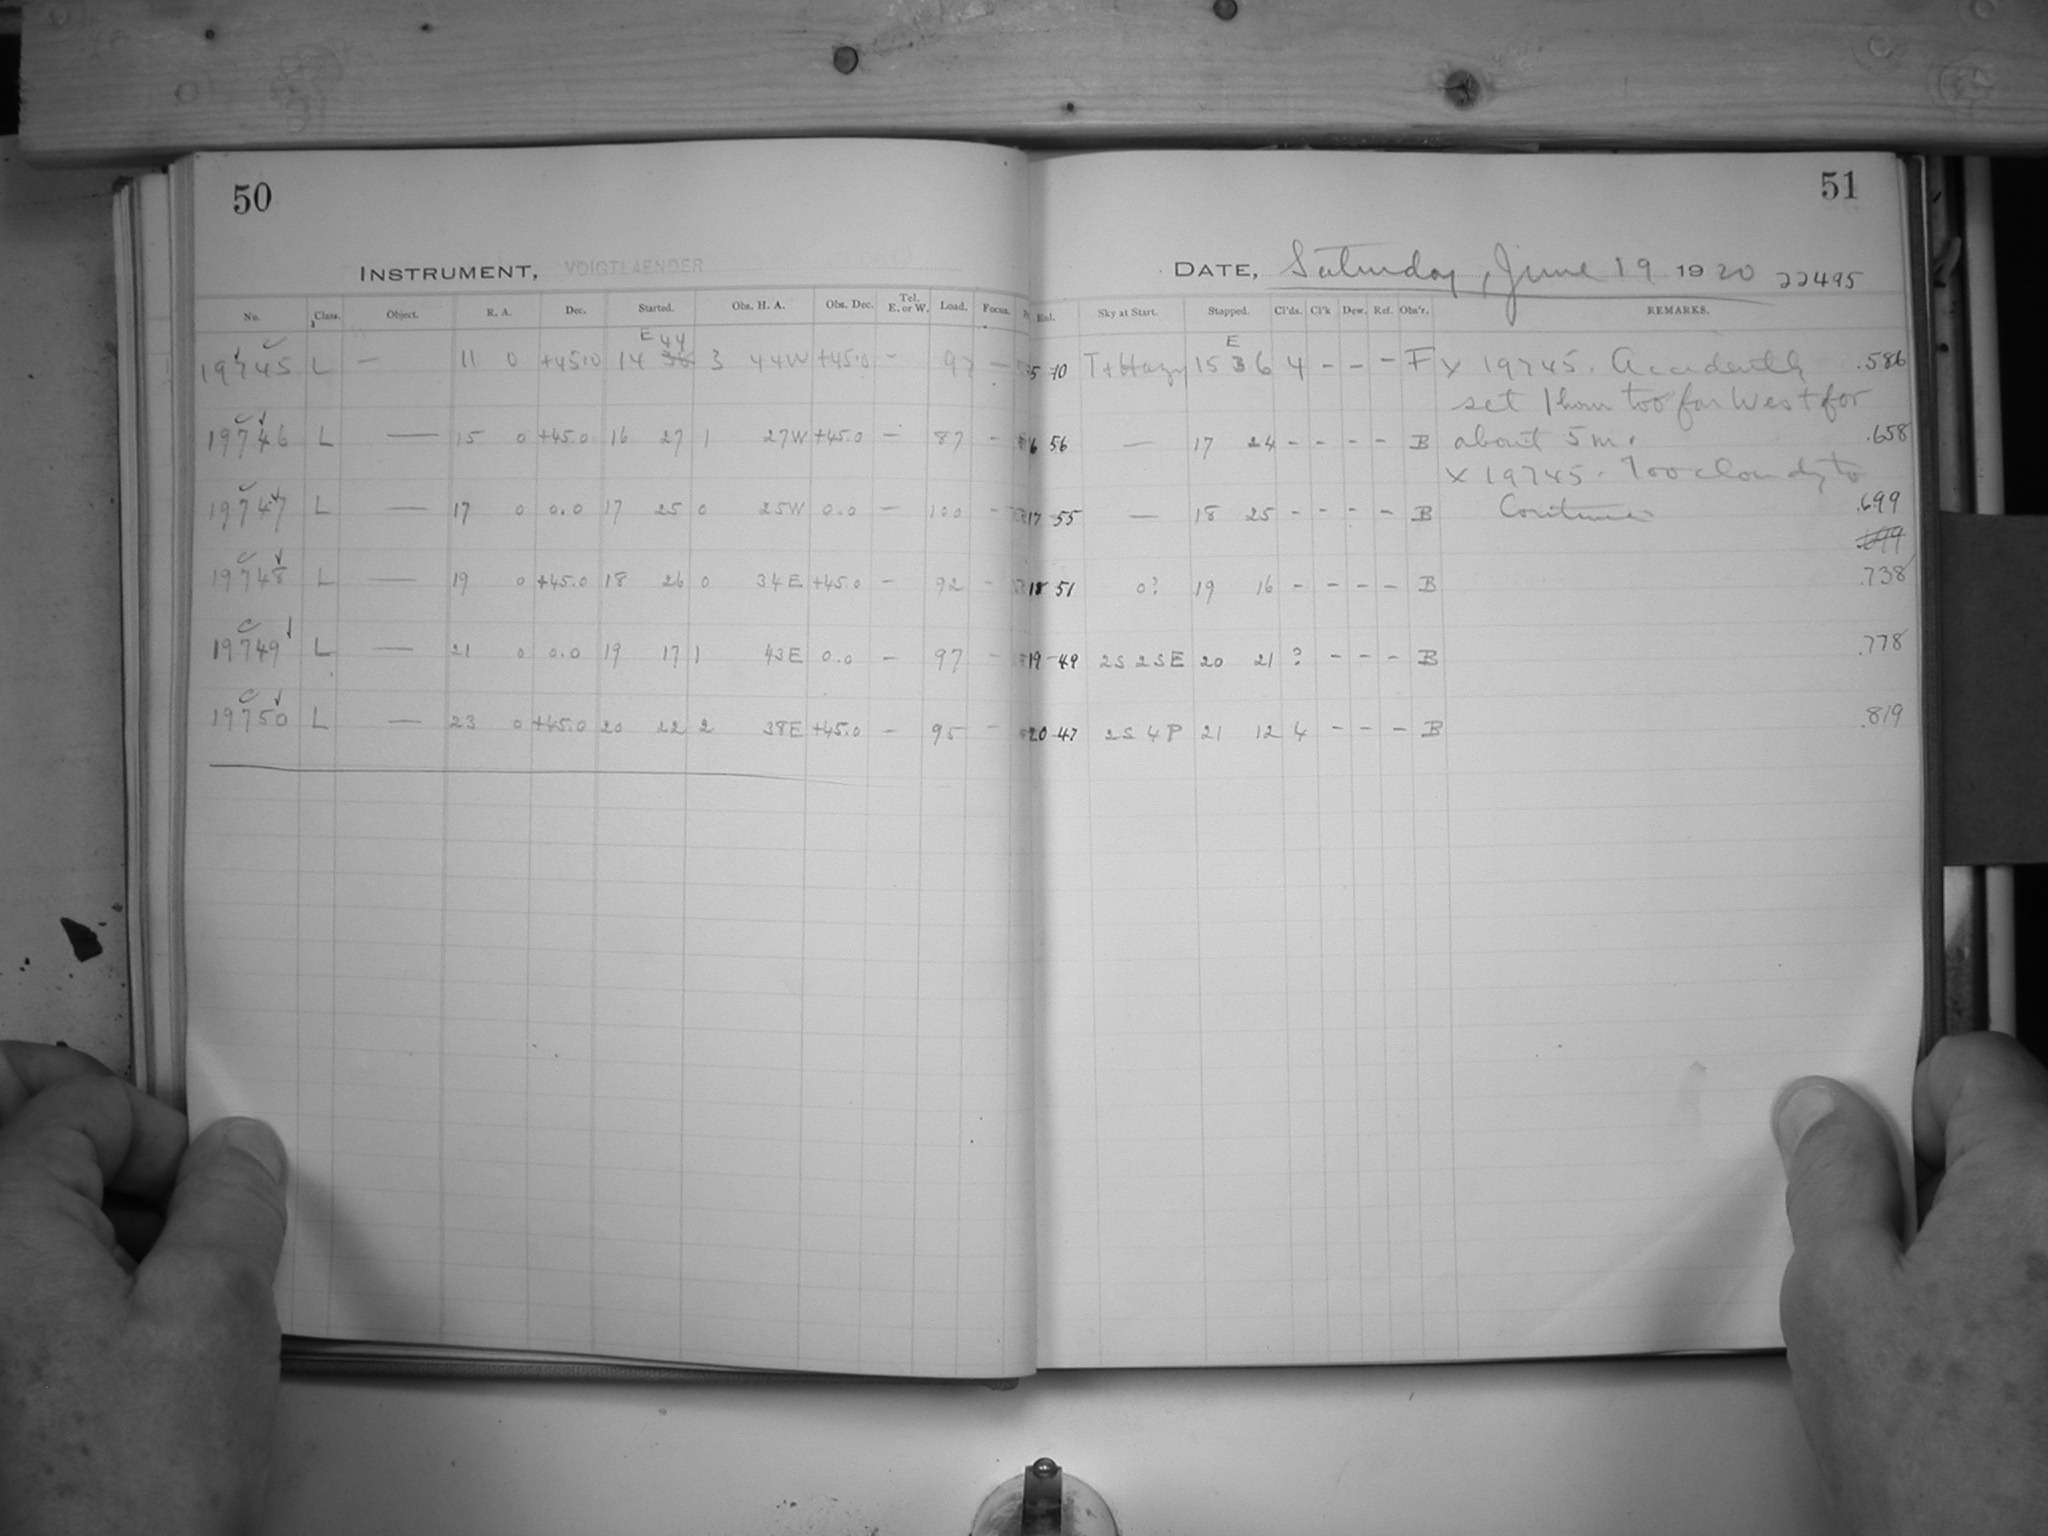 50
INSTRUMENT, VOIGTLAENDER
No. Class. Object. R. A. Dec. Started. Obs. H. A. Obs. Dec. Tel. E. or W. Load. Focus.
E 44
19745 L — 11 0 +45.0 14 36 3 44W +45.0 - 97 —
19746 L — 15 0 +45.0 16 27 1 27W +45.0 - 87 -
19747 L — 17 0 0.0 17 25 0 25W 0.0 - 100 -
19748 L — 19 0 +45.0 18 26 0 34E +45.0 - 92 -
19749 L — 21 0 0.0 19 17 1 43E 0.0 - 97 -
19750 L — 23 0 +45.0 20 22 2 38E +45.0 - 95 -
51
DATE, Saturday, June 19 1920 22495
Sky at Start. Stopped. Cl'ds. Cl'k Dew. Ref. Obs'r. REMARKS.
E
5 10 T+Hazy 15 36 4 - - - F X 19745. Accidently .586
set 1 hour too far West for
6 56 — 17 24 - - - - B about 5m. .658
X 19745. Too cloudy to
17 55 — 18 25 - - - - B Continue .699
.699
18 51 0? 19 16 - - - - B .738
19 49 2S 2SE 20 21 ? - - - B .778
20 47 2S 4P 21 12 4 - - - B .819